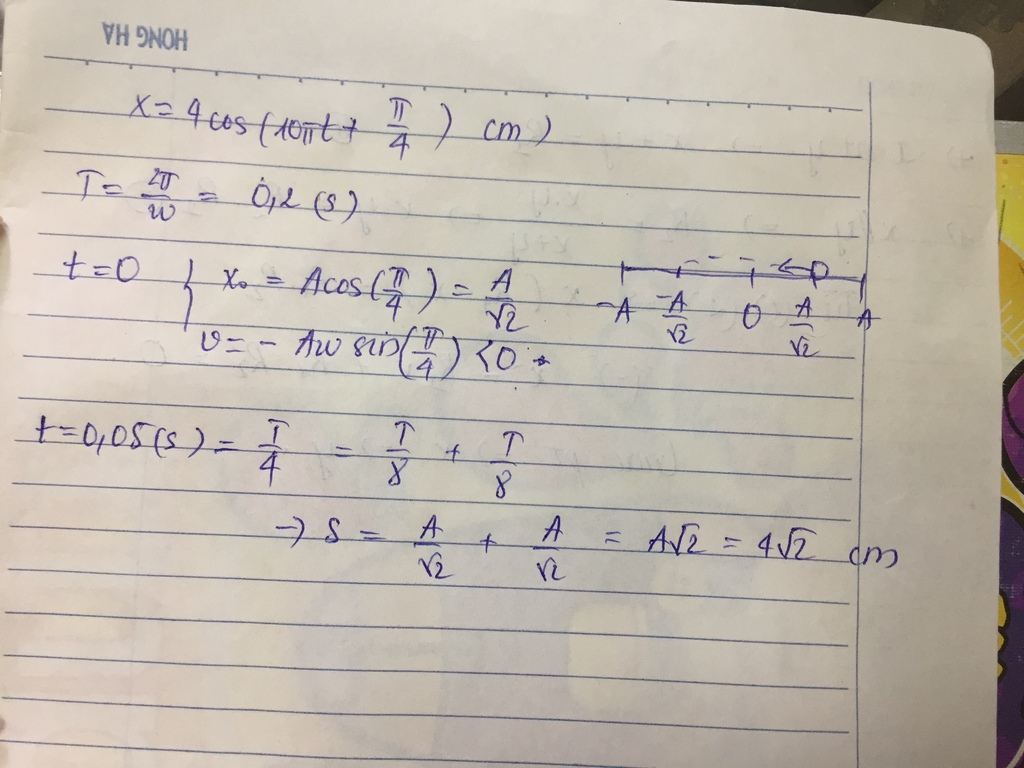 HONG HA
x = 4cos(10πt + π/4) cm)
T = 2π/ω = 0,2 (s)
t=0 { x₀ = Acos(π/4) = A/√2
v = - Aω sin(π/4) <0
-A -A/√2 O A/√2 A
t=0,05(s) = T/4 = T/8 + T/8
→ S = A/√2 + A/√2 = A√2 = 4√2 cm